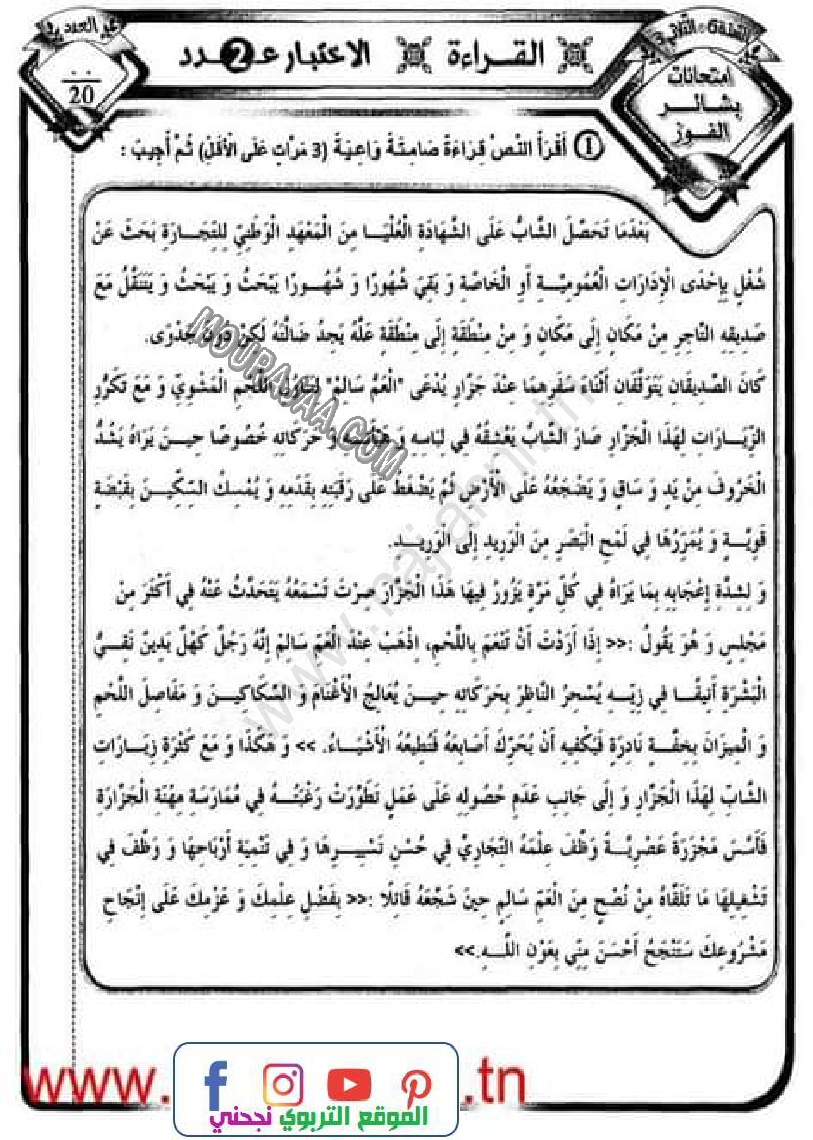 السنة 6 - الثلاثي 3
امتحانات
بشائر
الفوز
القراءة
الاختبار عـ2ـدد
20
① أَقْرَأُ النَّصَّ قِرَاءَةً صَامِتَةً وَاعِيَةً (3 مَرَّاتٍ عَلَى الْأَقَلِّ) ثُمَّ أُجِيبُ :
بَعْدَمَا تَحَصَّلَ الشَّابُّ عَلَى الشَّهَادَةِ الْعُلْيَا مِنَ الْمَعْهَدِ الْوَطَنِيِّ لِلتِّجَارَةِ بَحَثَ عَنْ
شُغْلٍ بِإِحْدَى الْإِدَارَاتِ الْعُمُومِيَّةِ أَوِ الْخَاصَّةِ وَ بَقِيَ شُهُورًا وَ شُهُورًا يَبْحَثُ وَ يَبْحَثُ وَ يَتَنَقَّلُ مَعَ
صَدِيقِهِ التَّاجِرِ مِنْ مَكَانٍ إِلَى مَكَانٍ وَ مِنْ مِنْطَقَةٍ إِلَى مِنْطَقَةٍ عَلَّهُ يَجِدُ ضَالَّتَهُ لَكِنْ دُونَ جَدْوَى.
كَانَ الصَّدِيقَانِ يَتَوَقَّفَانِ أَثْنَاءَ سَفَرِهِمَا عِنْدَ جَزَّارٍ يُدْعَى "الْعَمُّ سَالِمْ" لِتَنَاوُلِ اللَّحْمِ الْمَشْوِيِّ وَ مَعَ تَكَرُّرِ
الزِّيَارَاتِ لِهَذَا الْجَزَّارِ صَارَ الشَّابُّ يَعْشَقُهُ فِي لِبَاسِهِ وَ هَيْأَتِهِ وَ حَرَكَاتِهِ خُصُوصًا حِينَ يَرَاهُ يَشُدُّ
الْخَرُوفَ مِنْ يَدٍ وَ سَاقٍ وَ يَضْجَعُهُ عَلَى الْأَرْضِ ثُمَّ يَضْغَطُ عَلَى رَقَبَتِهِ بِقَدَمِهِ وَ يُمْسِكُ السِّكِّينَ بِقَبْضَةٍ
قَوِيَّةٍ وَ يُمَرِّرُهَا فِي لَمْحِ الْبَصَرِ مِنَ الْوَرِيدِ إِلَى الْوَرِيدِ.
وَ لِشِدَّةِ إِعْجَابِهِ بِمَا يَرَاهُ فِي كُلِّ مَرَّةٍ يَزُورُ فِيهَا هَذَا الْجَزَّارَ صِرْتَ تَسْمَعُهُ يَتَحَدَّثُ عَنْهُ فِي أَكْثَرَ مِنْ
مَجْلِسٍ وَ هُوَ يَقُولُ :<< إِذَا أَرَدْتَ أَنْ تَنْعَمَ بِاللَّحْمِ، اِذْهَبْ عِنْدَ الْعَمِّ سَالِمْ إِنَّهُ رَجُلٌ كَهْلٌ بَدِينٌ نَقِيُّ
الْبَشْرَةِ أَنِيقًا فِي زِيِّهِ يُسْحِرُ النَّاظِرَ بِحَرَكَاتِهِ حِينَ يُعَالِجُ الْأَغْنَامَ وَ السَّكَاكِينَ وَ مَفَاصِلَ اللَّحْمِ
وَ الْمِيزَانَ بِخِفَّةٍ نَادِرَةٍ فَيَكْفِيهِ أَنْ يُحَرِّكَ أَصَابِعَهُ فَتُطِيعُهُ الْأَشْيَاءُ. >> وَ هَكَذَا وَ مَعَ كَثْرَةِ زِيَارَاتِ
الشَّابِّ لِهَذَا الْجَزَّارِ وَ إِلَى جَانِبِ عَدَمِ حُصُولِهِ عَلَى عَمَلٍ تَطَوَّرَتْ رَغْبَتُهُ فِي مُمَارَسَةِ مِهْنَةِ الْجَزَارَةِ
فَأَسَّسَ مَجْزَرَةً عَصْرِيَّةً وَظَّفَ عِلْمَهُ التِّجَارِيَّ فِي حُسْنِ تَسْيِيرِهَا وَ فِي تَنْمِيَةِ أَرْبَاحِهَا وَ وَظَّفَ فِي
تَشْغِيلِهَا مَا تَلَقَّاهُ مِنْ نُصْحٍ مِنَ الْعَمِّ سَالِمِ حِينَ شَجَّعَهُ قَائِلًا :<< بِفَضْلِ عِلْمِكَ وَ عَزْمِكَ عَلَى إِنْجَاحِ
مَشْرُوعِكَ سَتَنْجَحُ أَحْسَنَ مِنِّي بِعَوْنِ اللَّهِ.>>
MOURAJAA.COM
www.
.tn
الموقع التربوي نجحني